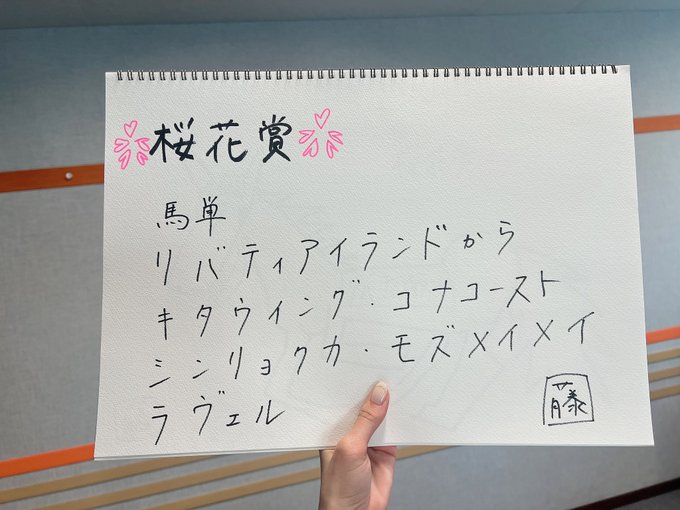 桜花賞
馬単
リバティアイランドから
キタウィング・コナコースト
シンリョクカ・モズメイメイ
ラヴェル
藤